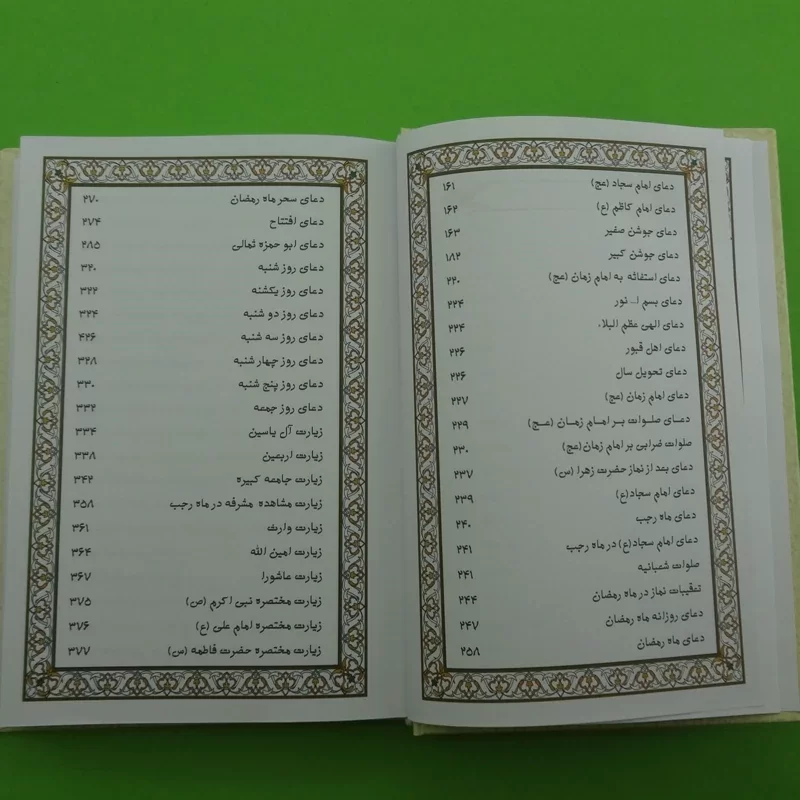 دعای امام سجاد (عج) ۱۶۱
دعای امام کاظم (ع) ۱۶۲
دعای جوشن صغیر ۱۶۳
دعای جوشن کبیر ۱۸۲
دعای استغاثه به امام زمان (عج) ۲۲۰
دعای بسم ا... نور ۲۲۴
دعای الهی عظم البلاء ۲۲۴
دعای اهل قبور ۲۲۶
دعای تحویل سال ۲۲۶
دعای امام زمان (عج) ۲۲۷
دعای صلوات بر امام زمان (عج) ۲۲۹
صلوات ضرابی بر امام زمان (عج) ۲۳۰
دعای بعد از نماز حضرت زهرا (س) ۲۳۷
دعای امام سجاد(ع) ۲۳۹
دعای ماه رجب ۲۴۰
دعای امام سجاد(ع) در ماه رجب ۲۴۱
صلوات شعبانیه ۲۴۱
تعقیبات نماز در ماه رمضان ۲۴۴
دعای روزانه ماه رمضان ۲۴۷
دعای ماه رمضان ۲۵۸
دعای سحر ماه رمضان ۲۷۰
دعای افتتاح ۲۷۴
دعای ابو حمزه ثمالی ۲۸۵
دعای روز شنبه ۳۲۰
دعای روز یکشنبه ۳۲۲
دعای روز دو شنبه ۳۲۴
دعای روز سه شنبه ۴۲۶
دعای روز چهار شنبه ۳۲۸
دعای روز پنج شنبه ۳۳۰
دعای روز جمعه ۳۳۲
زیارت آل یاسین ۳۳۴
زیارت اربعین ۳۳۸
زیارت جامعه کبیره ۳۴۲
زیارت مشاهده مشرفه در ماه رجب ۳۵۸
زیارت وارث ۳۶۱
زیارت امین الله ۳۶۴
زیارت عاشورا ۳۶۷
زیارت مختصره نبی اکرم (ص) ۳۷۵
زیارت مختصره امام علی (ع) ۳۷۶
زیارت مختصره حضرت فاطمه (س) ۳۷۷